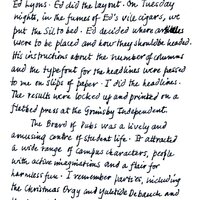 Ed Lyons. Ed did the layout. On Tuesday
nights, in the fumes of Ed's vile cigars, we
put the Sil to bed. Ed decided where articles
were to be placed and how they should be headed.
His instructions about the number of columns
and the typefont for the headlines were passed
to me on slips of paper. I did the headlines.
The results were locked up and printed on a
flatbed press at the Grimsby Independent.
The Board of Pubs was a lively and
amusing centre of student life. It attracted
a wide range of campus characters, people
with active imaginations and a flair for
harmless fun. I remember parties, including
the Christmas Orgy and Yuletide Debauch and